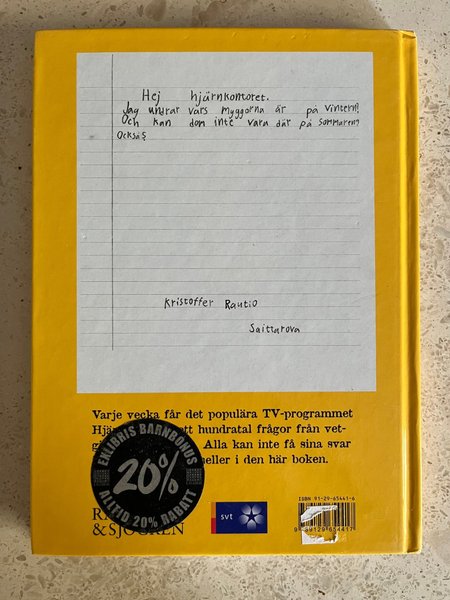 Hej hjärnkontoret.
Jag undrar vars myggorna är på vintern!
Och kan dom inte vara där på sommaren
också?
Kristoffer Rautio
Saittarova
Varje vecka får det populära TV-programmet
ett hundratal frågor från vet-
Alla kan inte få sina svar
eller i den här boken.
EXLIBRIS BARNBONUS
20%
ALLTID 20% RABATT
& SJÖGREN
svt
ISBN 91-29-65441-6
9 789129 654417